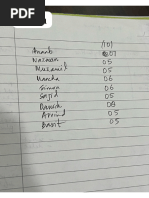 /10)
Anant 07
Nazneen 05
Muzamil 05
Mancha 06
Simga 06
Sajid 05
Danish 08
Arvind 05
Basit 05